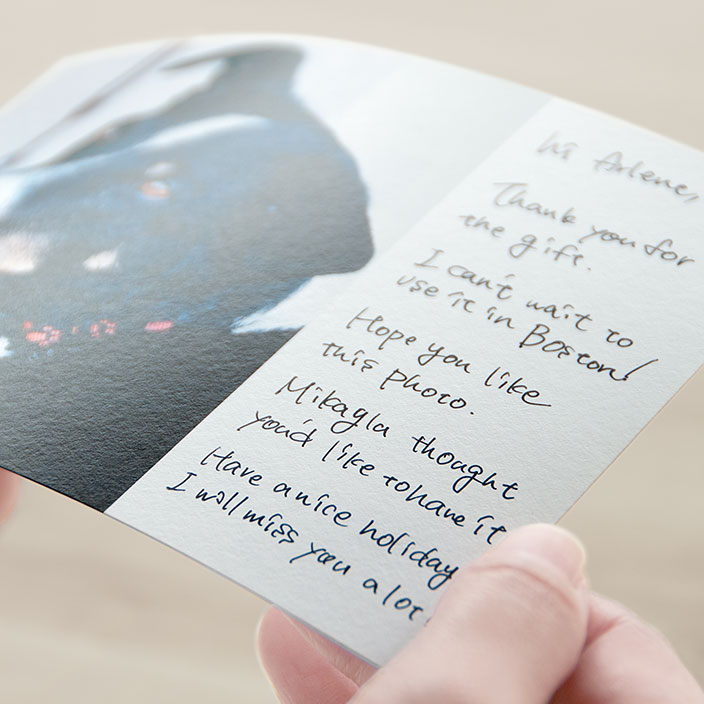 hi Arlene,
Thank you for
the gift.
I can't wait to
use it in Boston!
Hope you like
this photo.
Mikayla thought
you'd like to have it
Have a nice holiday
I will miss you a lot